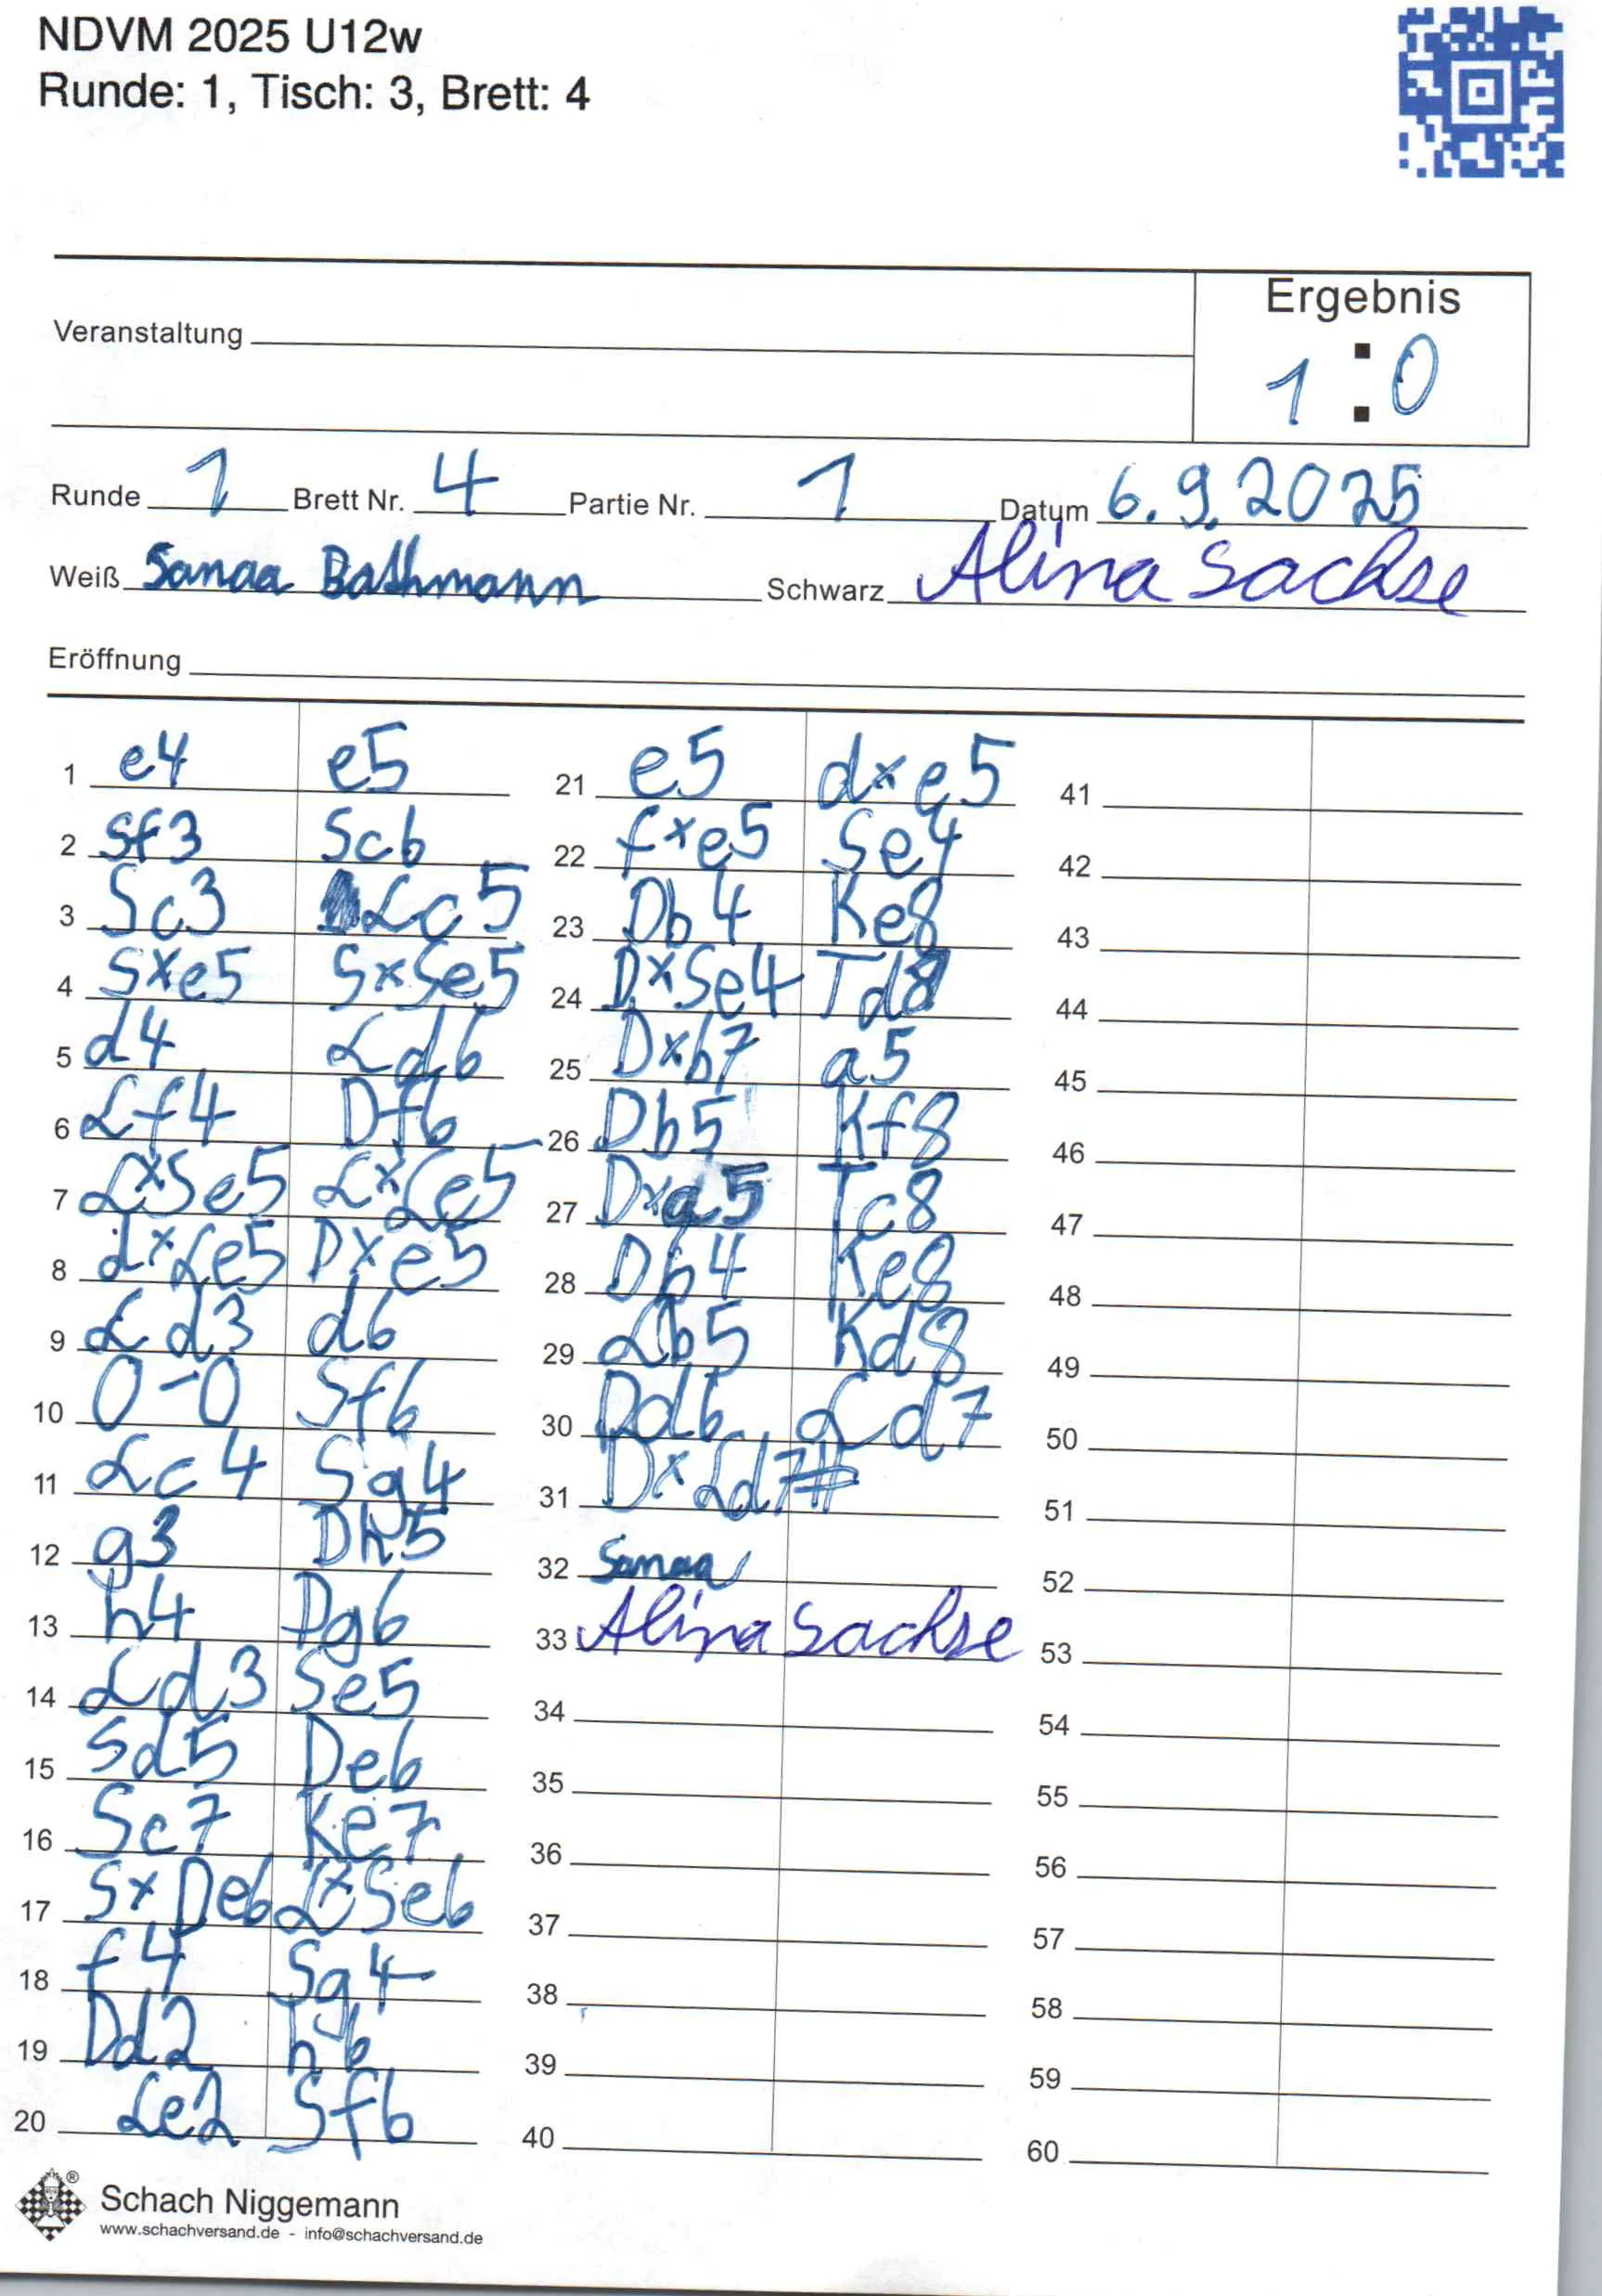 NDVM 2025 U12w
Runde: 1, Tisch: 3, Brett: 4
Ergebnis
Veranstaltung
1 : 0
Runde 1 Brett Nr. 4 Partie Nr. 1 Datum 6.9.2025
Weiß Sanaa Bathmann Schwarz Alina Sachse
Eröffnung
1 e4 e5
2 Sf3 Sc6
3 Sc3 Lc5
4 Sxe5 SxSe5
5 d4 Ld6
6 Lf4 Df6
7 LxSe5 LxLe5
8 dxLe5 Dxe5
9 Ld3 d6
10 0-0 Sf6
11 Lc4 Sg4
12 g3 Dh5
13 h4 Dg6
14 Ld3 Se5
15 Sd5 De6
16 Sc7 Ke7
17 SxDe6 LxSe6
18 f4 Sg4
19 Dd2 h6
20 Le2 Sf6
21 e5 dxe5
22 fxe5 Se4
23 Db4 Ke8
24 DxSe4 Td8
25 Dxb7 a5
26 Db5 Kf8
27 Dxa5 Tc8
28 Db4 Ke8
29 Lb5 Kd8
30 Dd6 Ld7
31 DxLd7#
32 Sanaa
33 Alina Sachse
34
35
36
37
38
39
40
41
42
43
44
45
46
47
48
49
50
51
52
53
54
55
56
57
58
59
60
®
Schach Niggemann
www.schachversand.de - info@schachversand.de